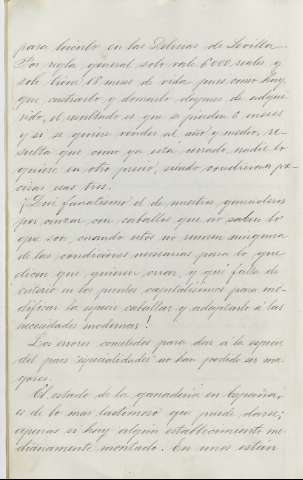 para burarlo en las Delicias de Sevilla.
Por regla general solo vale 6000 reales y
solo tiene 18 meses de vida pues como hay
que cuidarlo y domarlo despues de adqui-
rido, el resultado es que se pierden 6 meses
y si se quiere vender al año y medio, re-
sulta que como ya está cerrado, nadie lo
quiere en otro precio, siendo
cias esas tres.
¡Que fanatismo el de nuestros ganaderos
por cruzar con caballos que no saben lo
que son, cuando estos no reunen ninguna
de las condiciones necesarias para lo que
dicen que quieren criar, y que falta de
criterio en los puntos capitalísimos para mo-
dificar la especie caballar y adaptarla á las
necesidades modernas!
Los errores cometidos para dar a la especie
del pais especialidades no han podido ser ma-
yores.
El estado de la ganadería en España,
es de lo mas lastimoso que puede darse;
apenas si hay algun establecimiento me-
dianamente montado. En unos estan